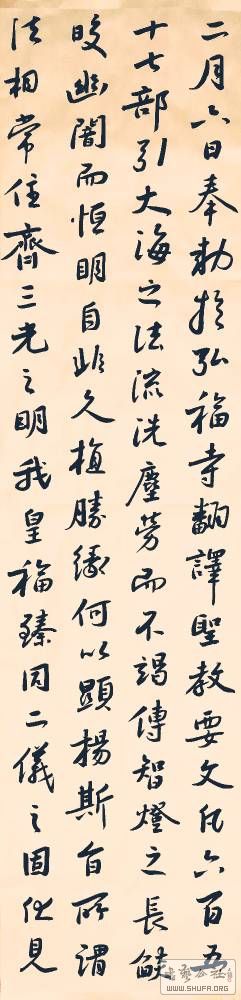 二月六日奉勅於弘福寺翻譯聖教要文凡六百五
十七部引大海之法流洗塵勞而不竭傳智燈之長燄
皎幽闇而恒明自非久植勝緣何以顯揚斯旨所謂
法相常住齊三光之明我皇福臻同二儀之固伏見
WWW.SHUFA.ORG